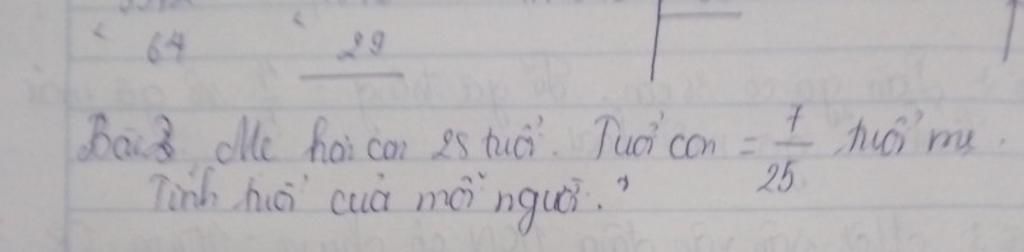 64 29
Bài 3 Mẹ hơn con 28 tuổi. Tuổi con = 7/25 tuổi mẹ.
Tính tuổi của mỗi người.?